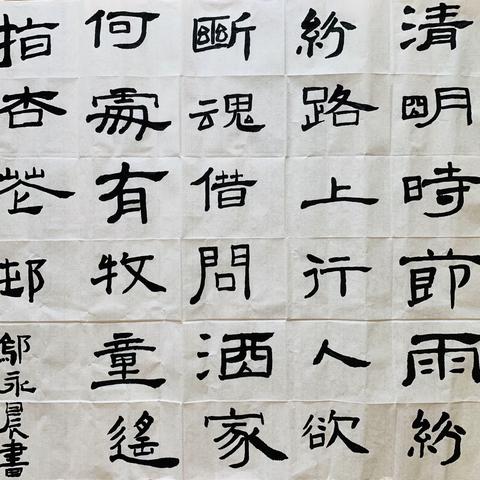 清明時節雨紛
紛路上行人欲
斷魂借問酒家
何處有牧童遙
指杏花邨
鄔永晨書